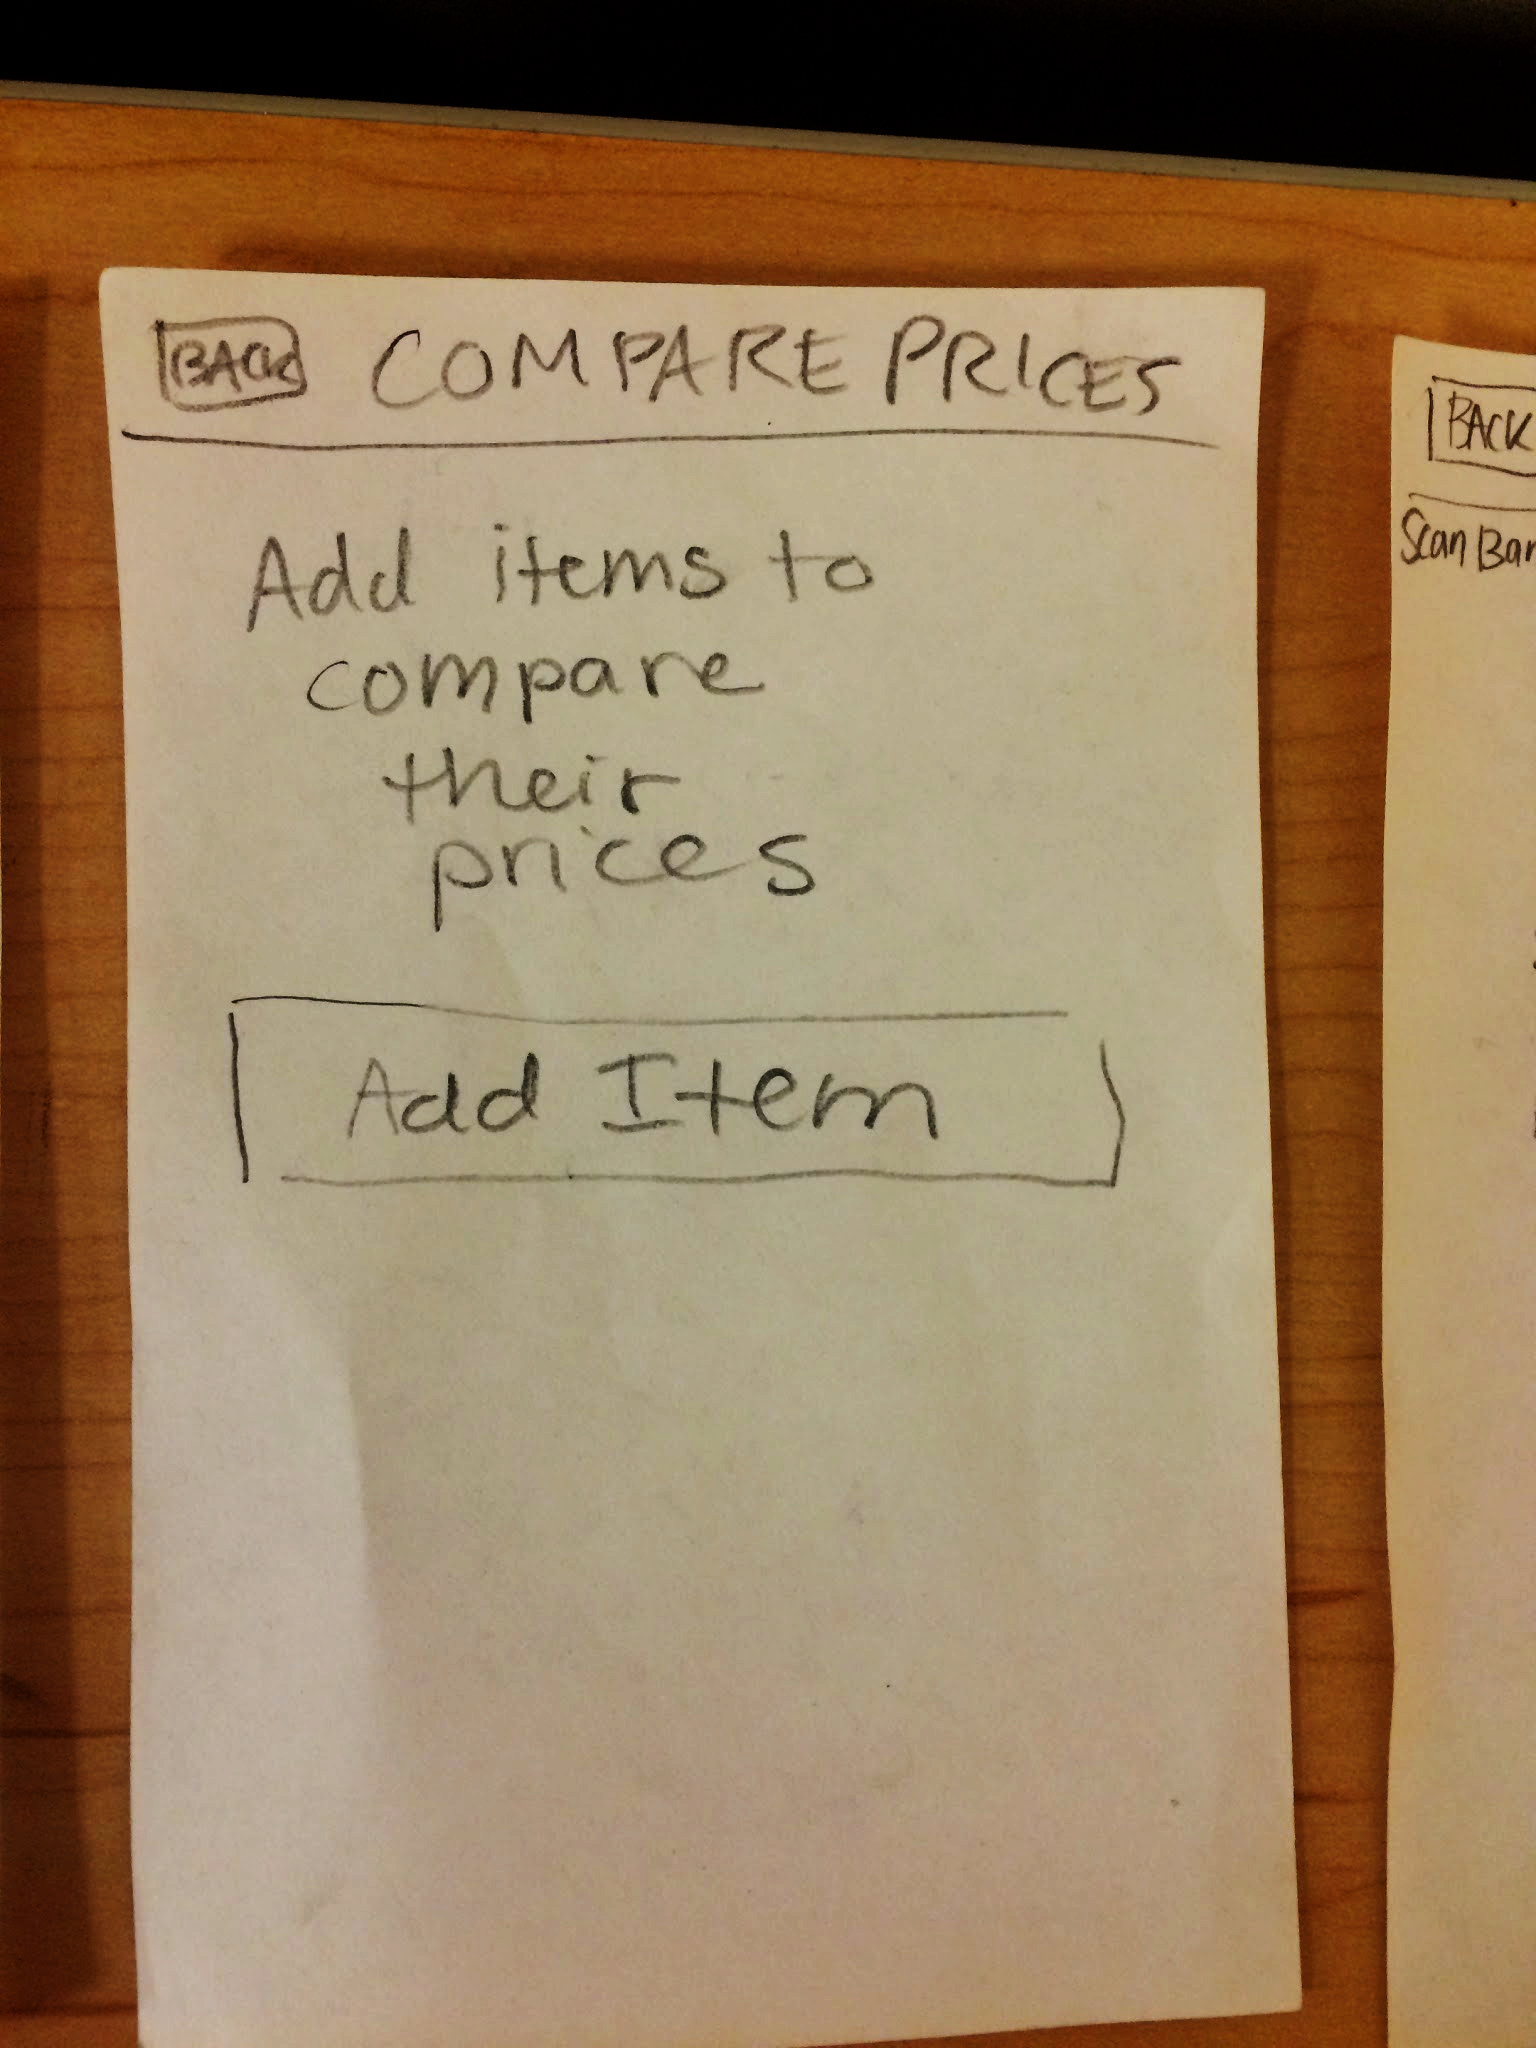 BACK COMPARE PRICES
Add items to
compare
their
prices
Add Item
BACK
Scan Bar